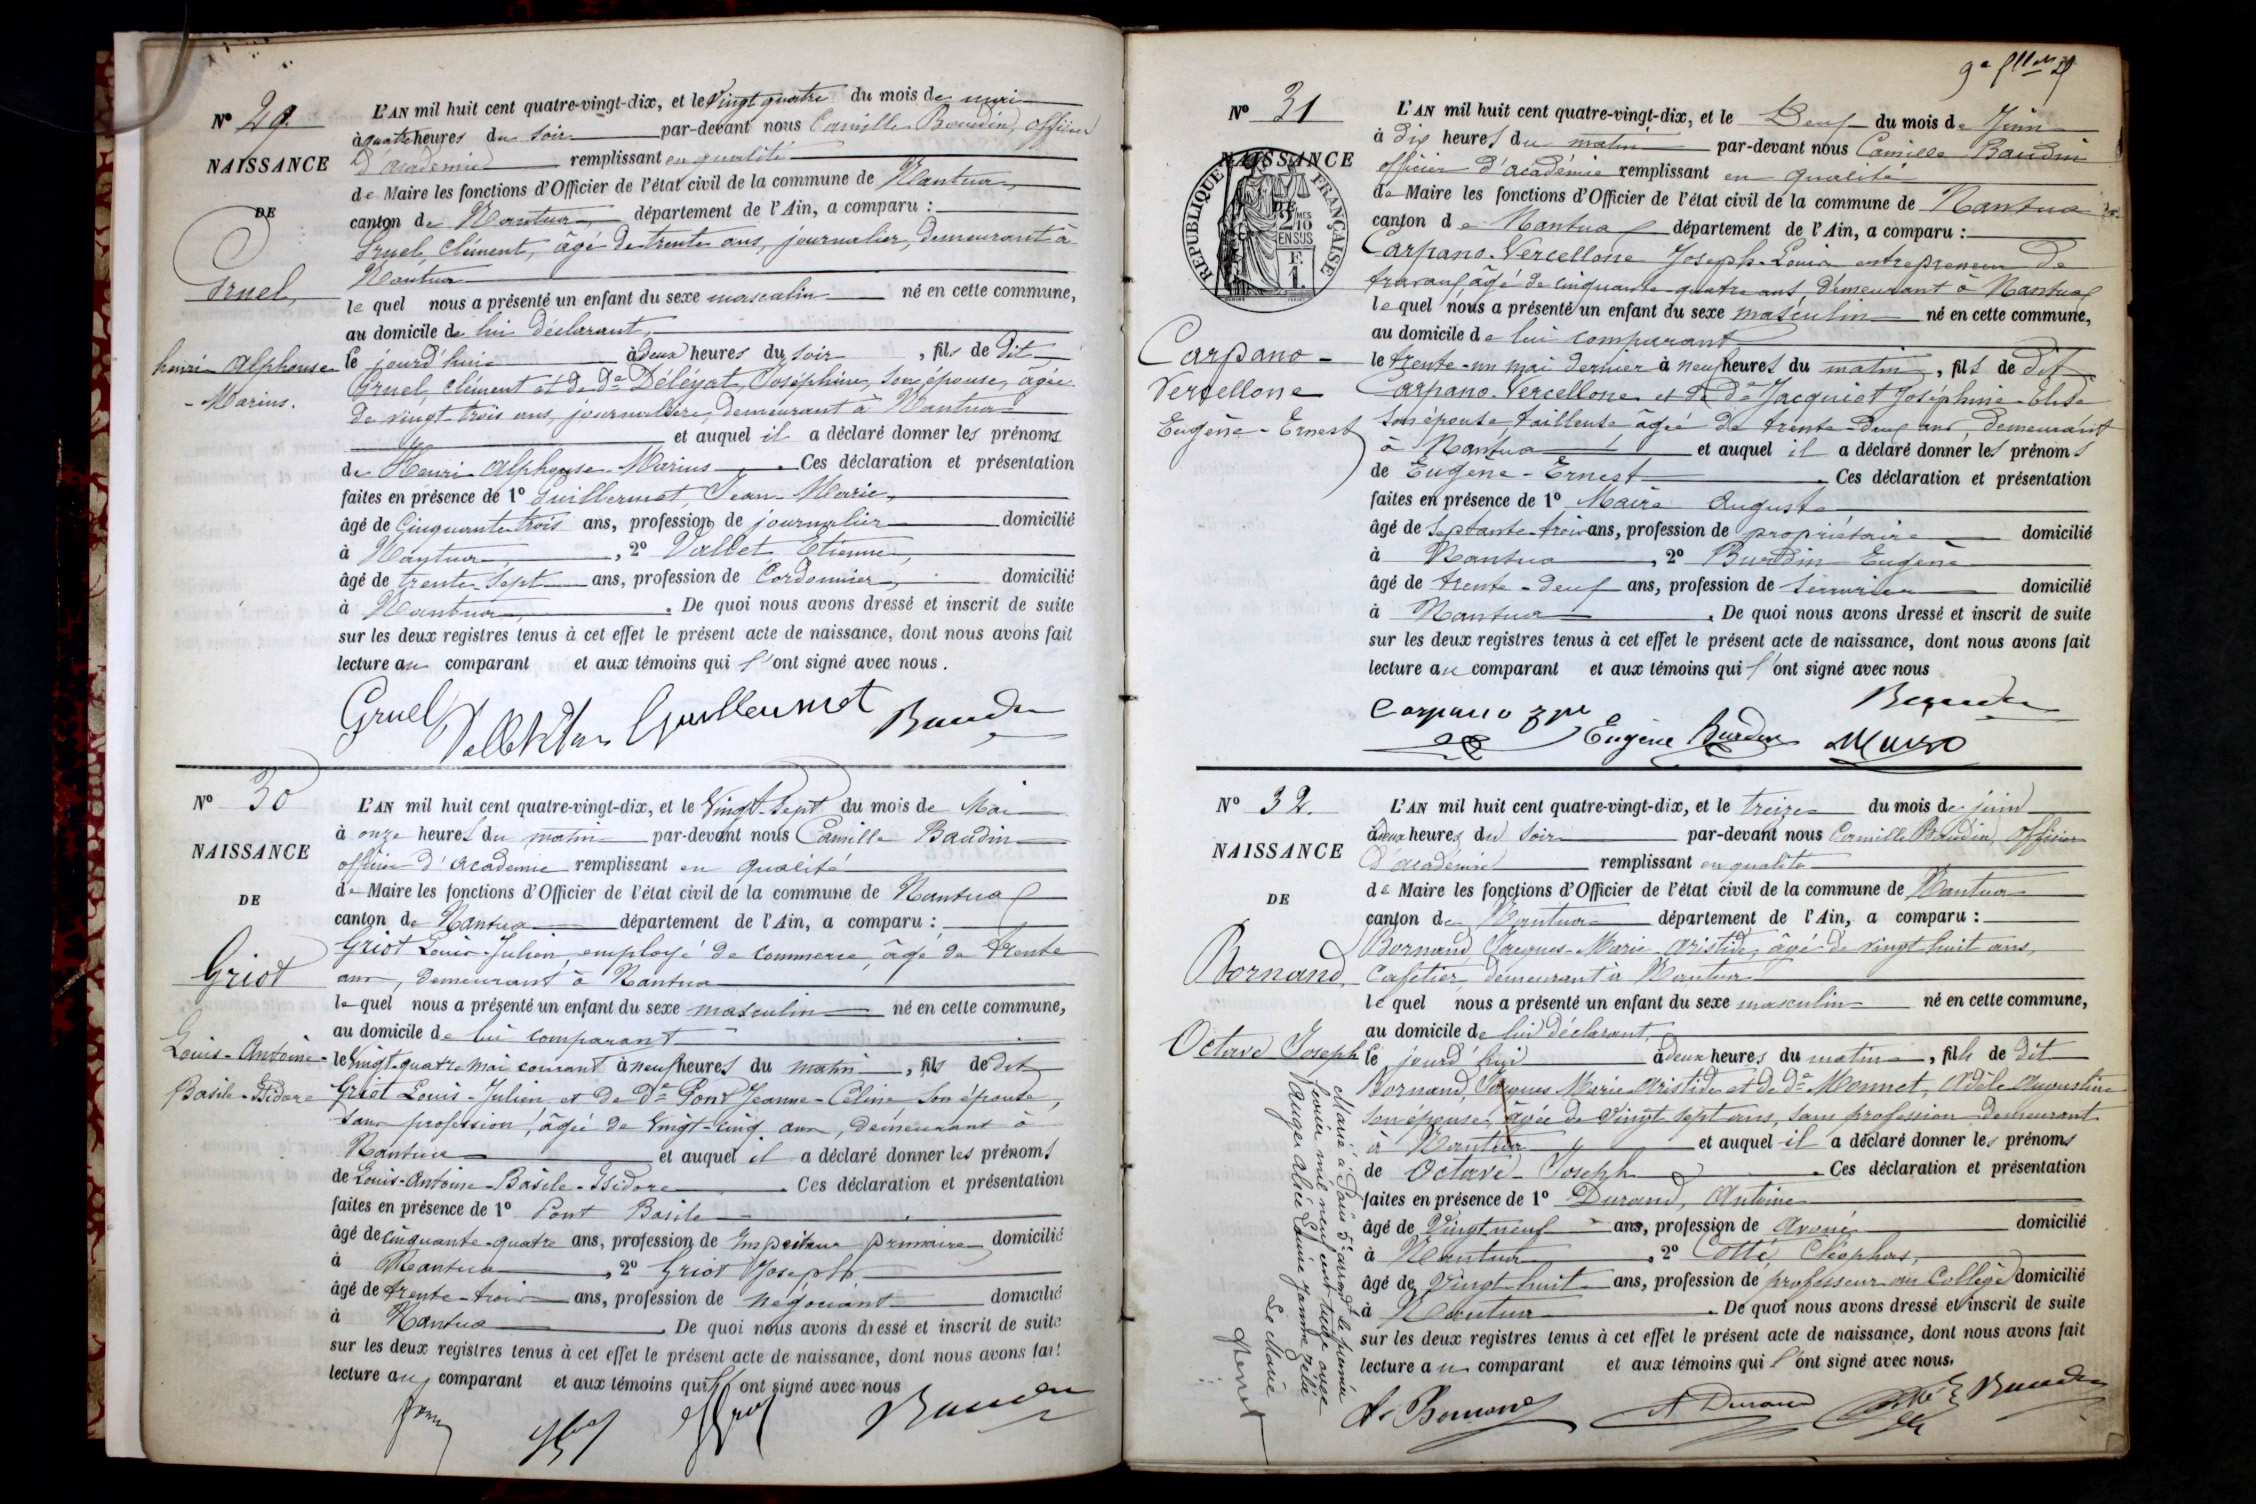 Nº 29
NAISSANCE
DE
Gruel,
henri Alphonse
- Marius.
L'AN mil huit cent quatre-vingt-dix, et le Vingt quatre du mois de mai
à quatre heures du soir par-devant nous Camille Baudin, officier
d'académie remplissant en qualité
de Maire les fonctions d'Officier de l'état civil de la commune de Nantua,
canton de Nantua département de l'Ain, a comparu :
Gruel, Clément, âgé de trente ans, journalier, demeurant à
Nantua
le quel nous a présenté un enfant du sexe masculin né en cette commune,
au domicile de lui déclarant,
le jourd'hui à deux heures du soir, fils de dit
Gruel, clément et de de Déléyat, Joséphine, son épouse, âgée
de vingt trois ans, journalière, demeurant à Nantua
et auquel il a déclaré donner les prénoms
de Henri-Alphonse-Marius. Ces déclaration et présentation
faites en présence de 1º Guillermet, Jean-Marie,
âgé de Cinquante trois ans, profession de journalier domicilié
à Nantua, 2º Vallet Etienne,
âgé de trente sept ans, profession de Cordonnier, domicilié
à Nantua. De quoi nous avons dressé et inscrit de suite
sur les deux registres tenus à cet effet le présent acte de naissance, dont nous avons fait
lecture au comparant et aux témoins qui l'ont signé avec nous.
Gruel Guillermet Baudin
Nº 30
NAISSANCE
DE
Griot
Louis-Antoine-
Basile-Isidore
L'AN mil huit cent quatre-vingt-dix, et le Vingt-Sept du mois de Mai
à onze heures du matin par-devant nous Camille Baudin
officier d'académie remplissant en qualité
de Maire les fonctions d'Officier de l'état civil de la commune de Nantua
canton de Nantua département de l'Ain, a comparu :
Griot Louis-Julien, employé de commerce, âgé de trente
ans, demeurant à Nantua
le quel nous a présenté un enfant du sexe masculin né en cette commune,
au domicile de lui comparant
le Vingt-quatre mai courant à neuf heures du matin, fils de dit
Griot Louis-Julien et de de Pont Jeanne-Céline son épouse,
sans profession, âgée de Vingt-cinq ans, demeurant à
Nantua et auquel il a déclaré donner les prénoms
de Louis-Antoine-Basile-Isidore. Ces déclaration et présentation
faites en présence de 1º Pont Basile
âgé de cinquante-quatre ans, profession de Inspecteur primaire domicilié
à Nantua, 2º Griot Joseph
âgé de trente-trois ans, profession de négociant domicilié
à Nantua. De quoi nous avons dressé et inscrit de suite
sur les deux registres tenus à cet effet le présent acte de naissance, dont nous avons fait
lecture au comparant et aux témoins qui l'ont signé avec nous
Baudin
Nº 31
NAISSANCE
RÉPUBLIQUE FRANÇAISE
2 MES
10
EN SUS
F.
1.
Carpano-
Vercellone
Eugène-Ernest
L'AN mil huit cent quatre-vingt-dix, et le Deux du mois de Juin
à dix heures du matin par-devant nous Camille Baudin
officier d'académie remplissant en qualité
de Maire les fonctions d'Officier de l'état civil de la commune de Nantua
canton de Nantua département de l'Ain, a comparu :
Carpano-Vercellone Joseph-Louis entrepreneur de
travaux âgé de cinquante-quatre ans demeurant à Nantua
le quel nous a présenté un enfant du sexe masculin né en cette commune,
au domicile de lui comparant
le trente-un mai dernier à neuf heures du matin, fils de dit
Carpano-Vercellone et de de Jacquiot Joséphine-Elisa
son épouse tailleuse âgée de trente-deux ans, demeurant
à Nantua et auquel il a déclaré donner les prénoms
de Eugène-Ernest. Ces déclaration et présentation
faites en présence de 1º Maire Auguste
âgé de septante-trois ans, profession de propriétaire domicilié
à Nantua, 2º Burdin Eugène
âgé de trente-deux ans, profession de serrurier domicilié
à Nantua. De quoi nous avons dressé et inscrit de suite
sur les deux registres tenus à cet effet le présent acte de naissance, dont nous avons fait
lecture au comparant et aux témoins qui l'ont signé avec nous
Baudin
Carpano Eugène Burdin
Nº 32.
NAISSANCE
DE
Bornand,
Octave Joseph
L'AN mil huit cent quatre-vingt-dix, et le treize du mois de juin
à deux heures du soir par-devant nous Camille Baudin, Officier
d'académie remplissant en qualité
de Maire les fonctions d'Officier de l'état civil de la commune de Nantua
canton de Nantua département de l'Ain, a comparu :
Bornand, Jacques-Marie-Aristide, âgé de vingt huit ans,
Cafetier, demeurant à Nantua
le quel nous a présenté un enfant du sexe masculin né en cette commune,
au domicile de lui déclarant,
le jourd'hui à deux heures du matin, fils de dit
Bornand, Jacques Marie Aristide et de de Monnet, Adèle Augustine
son épouse, âgée de vingt sept ans, sans profession demeurant
à Nantua et auquel il a déclaré donner les prénoms
de Octave-Joseph. Ces déclaration et présentation
faites en présence de 1º Durand, Antoine
âgé de Vingt neuf ans, profession de avoué domicilié
à Nantua, 2º Cotté, Cléophas,
âgé de Vingt huit ans, profession de professeur au Collège domicilié
à Nantua. De quoi nous avons dressé et inscrit de suite
sur les deux registres tenus à cet effet le présent acte de naissance, dont nous avons fait
lecture au comparant et aux témoins qui l'ont signé avec nous.
A. Bornand A Durand Cotté Baudin
Marié à Paris 5e arrondt le premier
février mil neuf cent treize avec
Auger Alice Laurie Jeanne Zélie
Le Maire